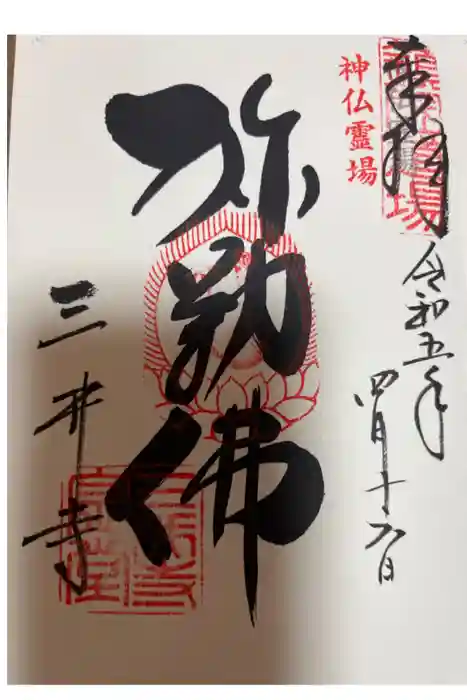 奉拝
神仏霊場
令和五年
四月十六日
弥勒佛
三井寺